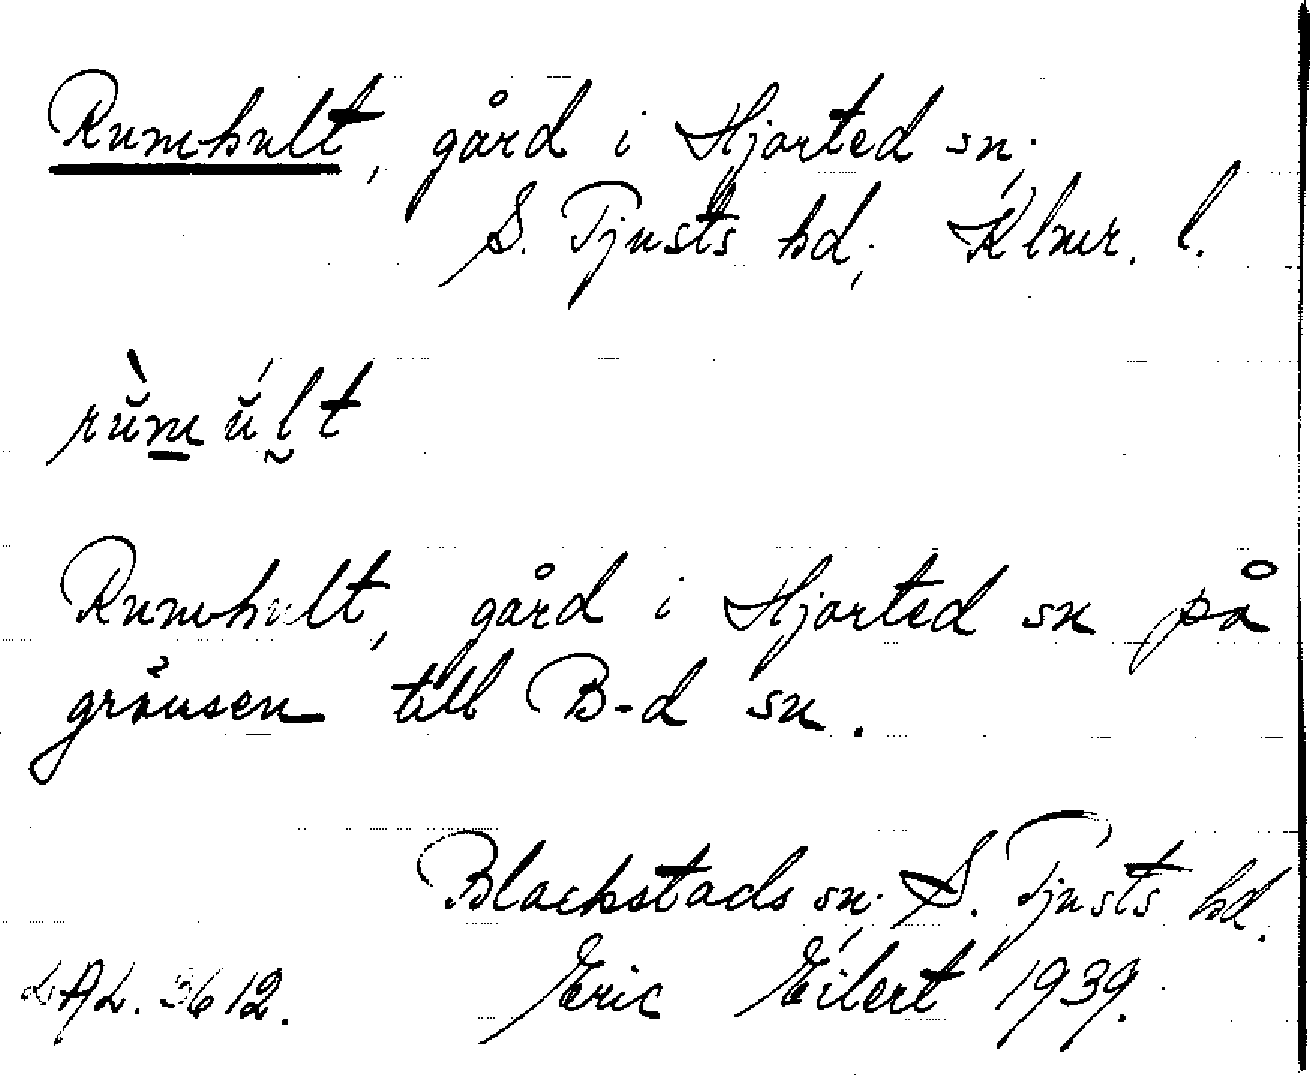 Rumhult, gård i Hjorted sn;
S. Tjusts hd; Klmr. l.
rù̆m ŭ́l̰t
Rumhult, gård i Hjorted sn på
gränsen till B-d sn.
Blackstads sn; S. Tjusts hd.
LAL. 3612. Eric Eilert 1939.